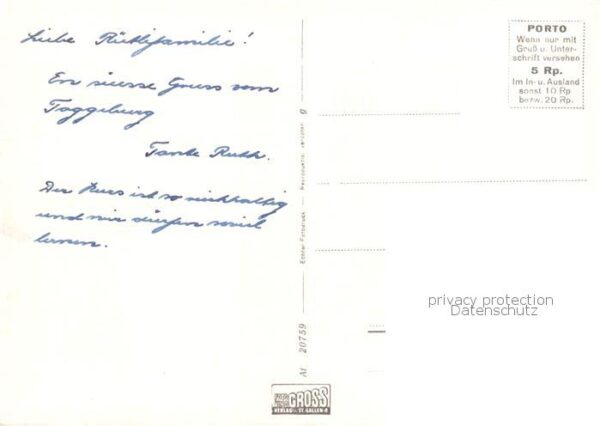 Liebe Rütlifamilie!
En suesse Gruss vom
Toggeburg
Tante Ruth.
Der Kurs ist so reichhaltig
und wir dürfen soviel
lernen.
PORTO
Wenn nur mit
Gruß u. Unter-
schrift versehen
5 Rp.
Im In- u. Ausland
sonst 10 Rp
bezw. 20 Rp.
Echter Fotodruck — Reproduktion verboten
Af 20759
GROSS
VERLAG - ST. GALLEN
privacy protection
Datenschutz